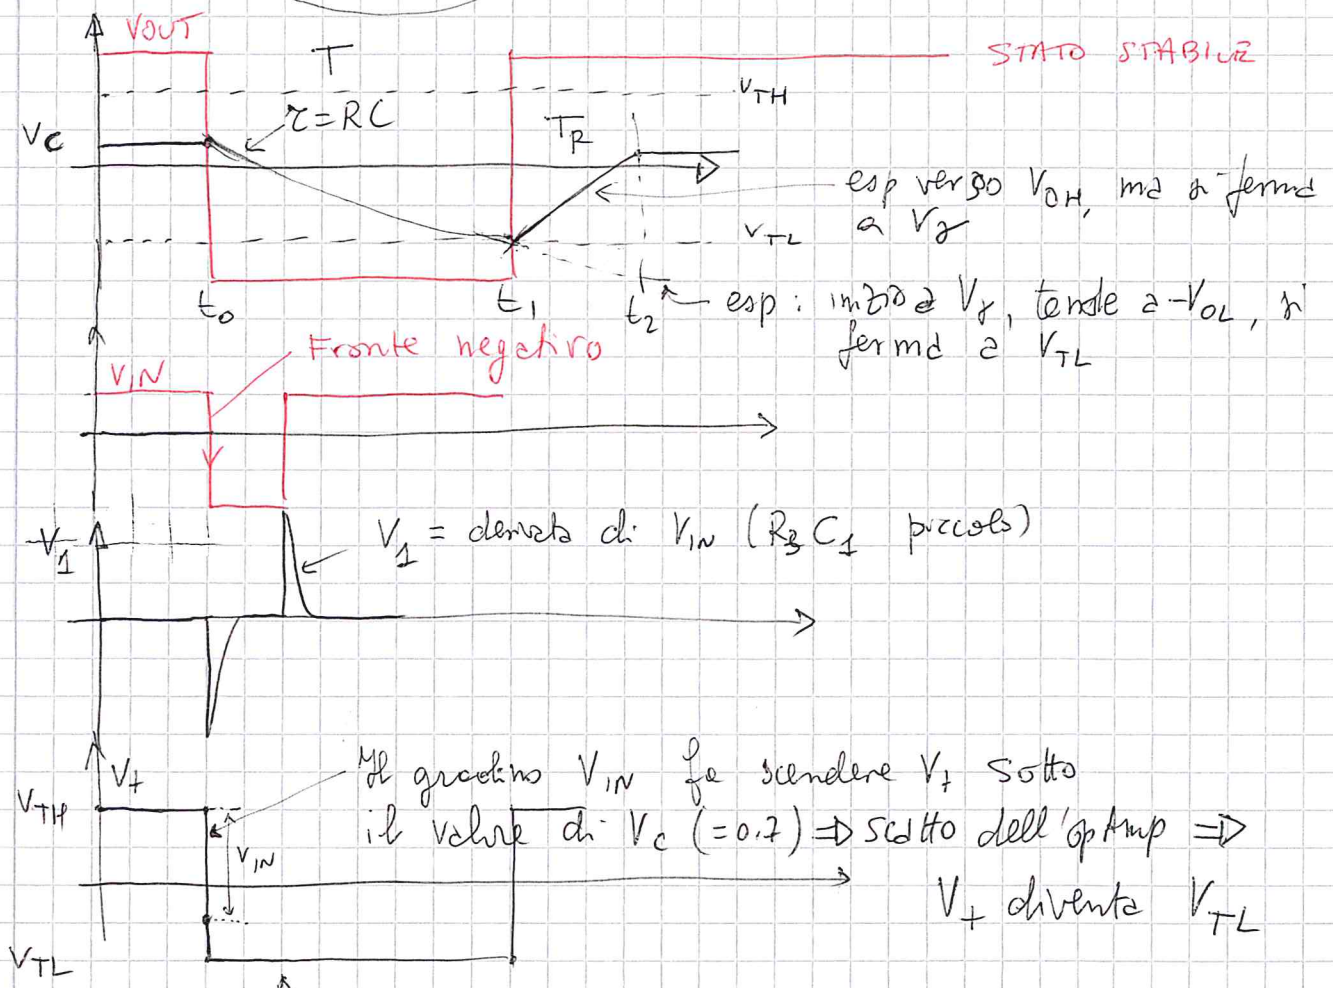 VOUT
T
STATO STABILE
VTH
τ=RC
VC
TR
esp verso VOH, ma si ferma
a Vγ
VTL
t0
t1
t2
esp: inizio a Vγ, tende a -VOL, si
ferma a VTL
Fronte negativo
VIN
V1
V1 = derivata di VIN (R3C1 piccolo)
V+
Il gradino VIN fa scendere V+ sotto
VTH
il valore di VC (=0.7) ⇒ scatto dell'opAmp ⇒
VIN
V+ diventa VTL
VTL